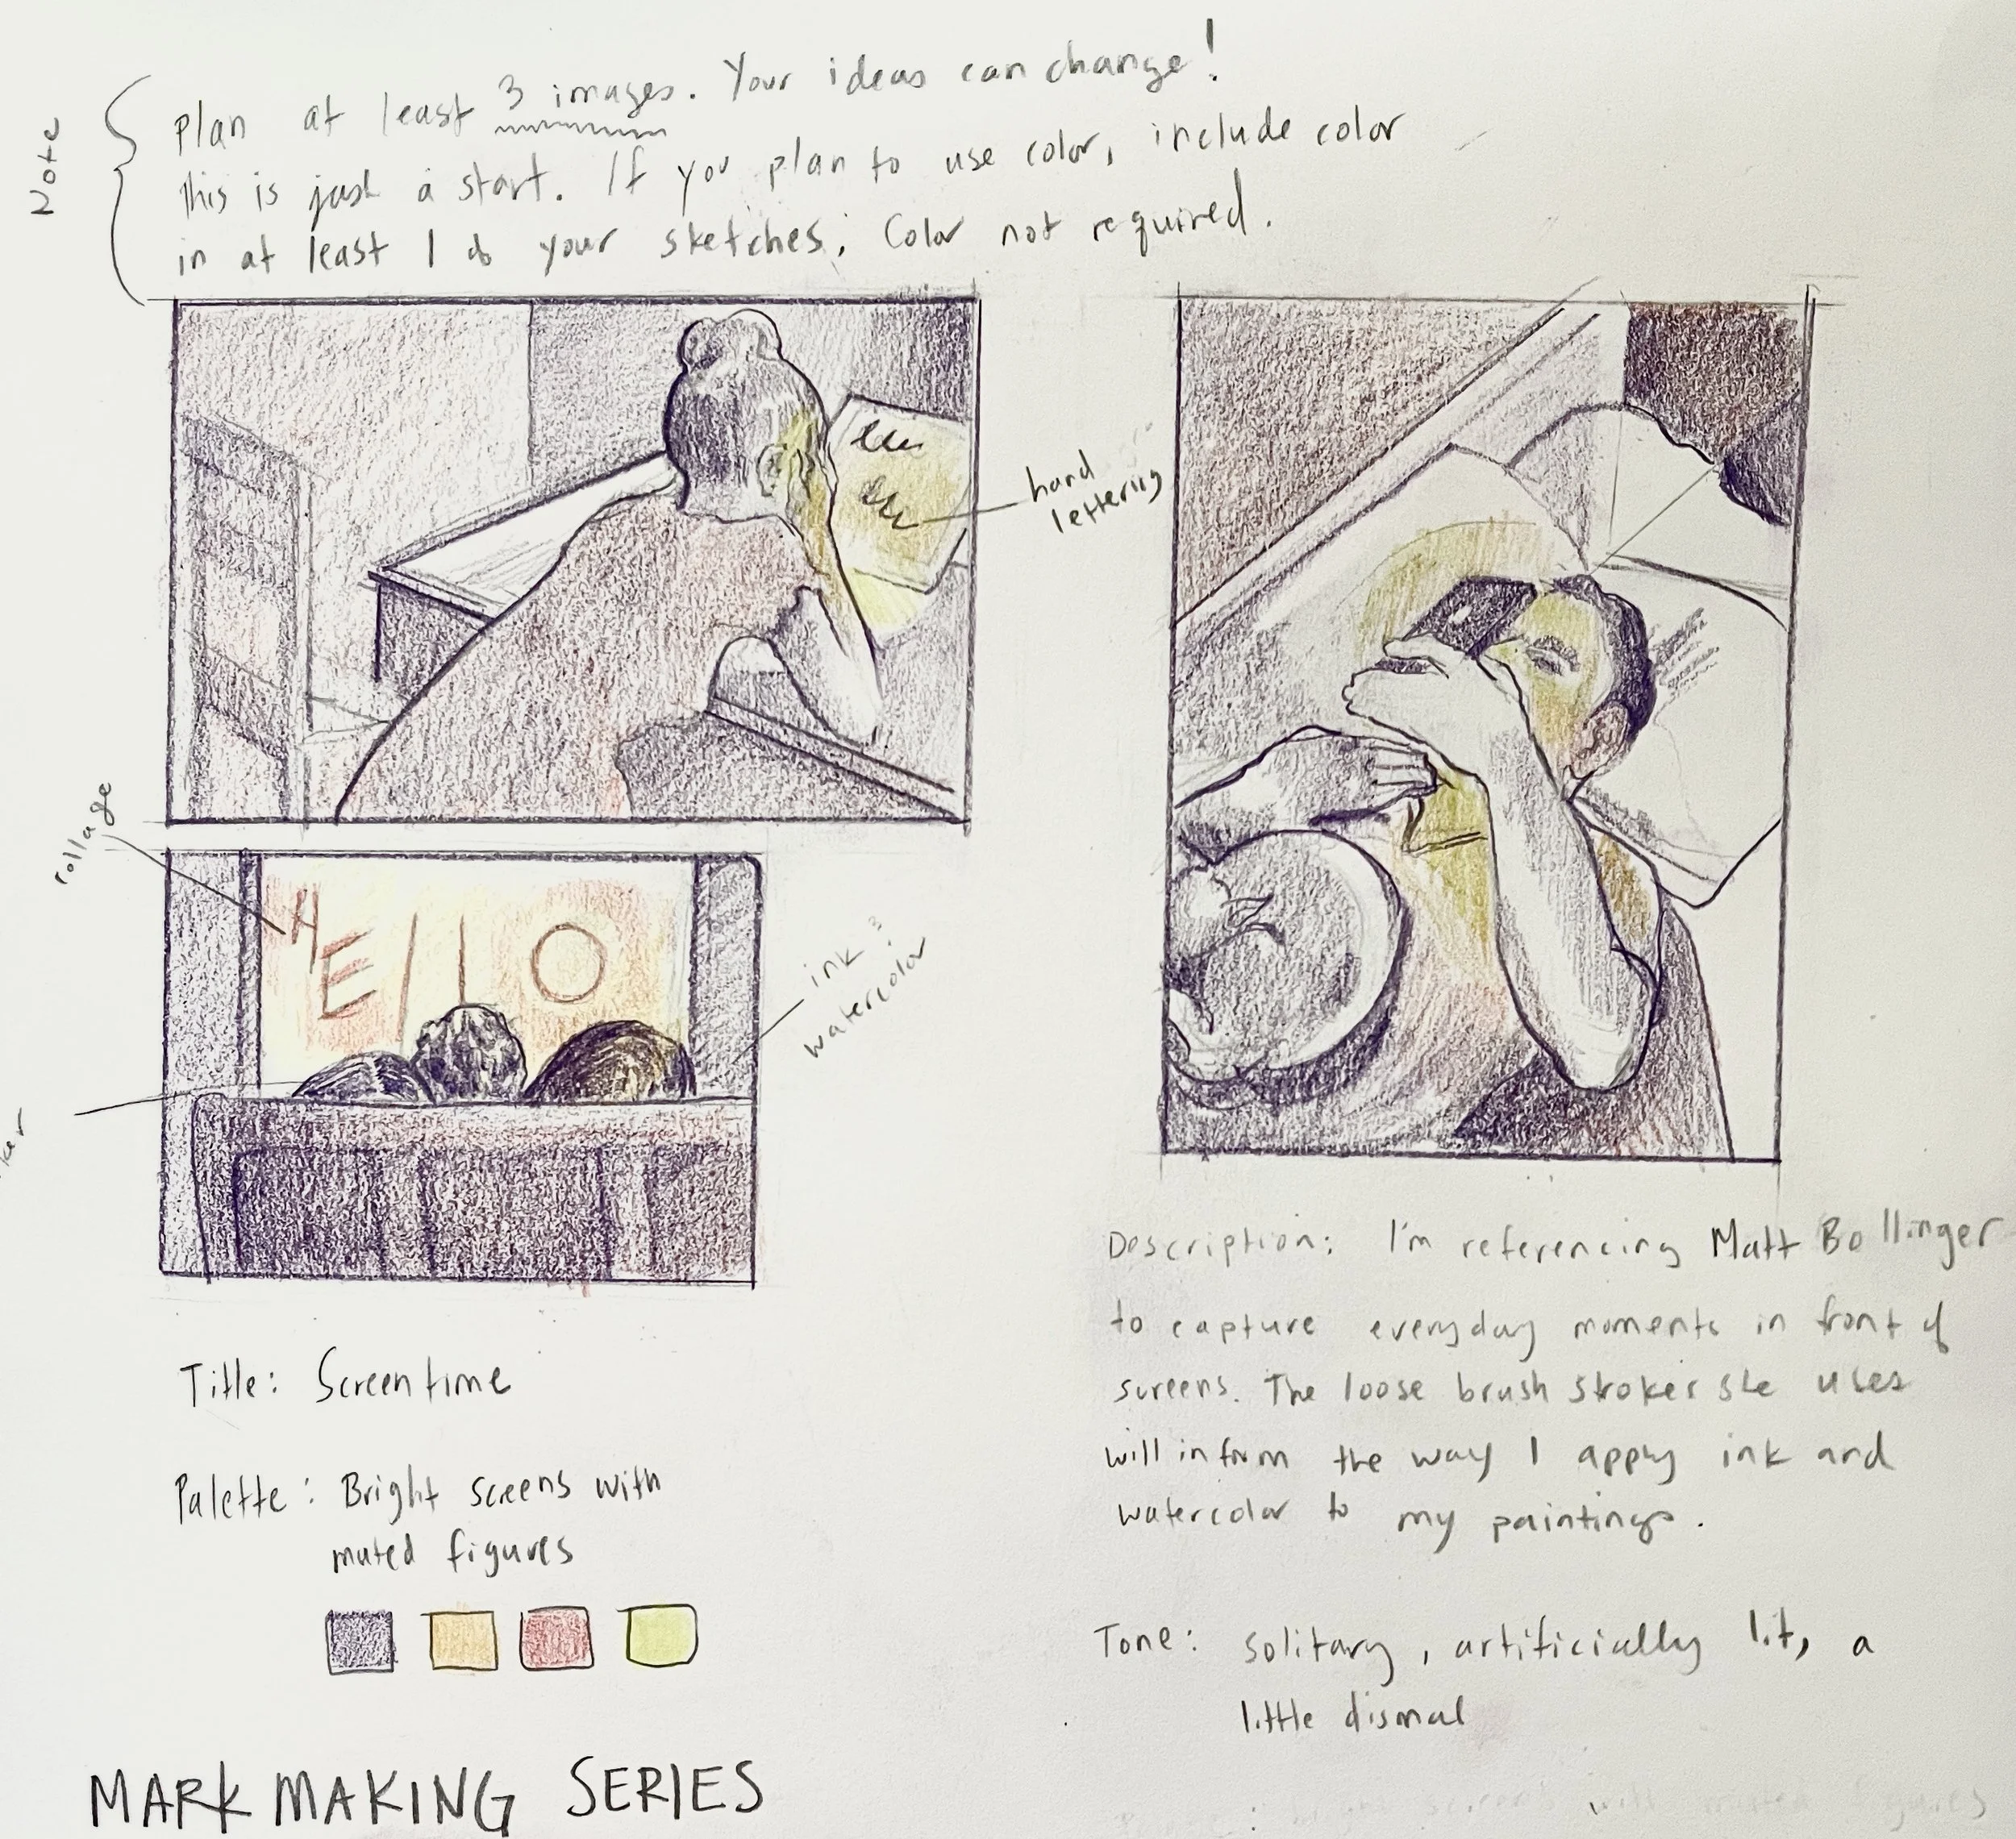 Note
Plan at least 3 images. Your ideas can change!
This is just a start. If you plan to use color, include color
in at least 1 of your sketches. Color not required.
hand
lettering
collage
HEllO
ink &
watercolor
Title: Screentime
Palette: Bright screens with
muted figures
Description: I'm referencing Matt Bollinger
to capture everyday moments in front of
screens. The loose brush strokes she uses
will inform the way I apply ink and
watercolor to my paintings.
Tone: solitary, artificially lit, a
little dismal
MARK MAKING SERIES
bright screens with muted figures